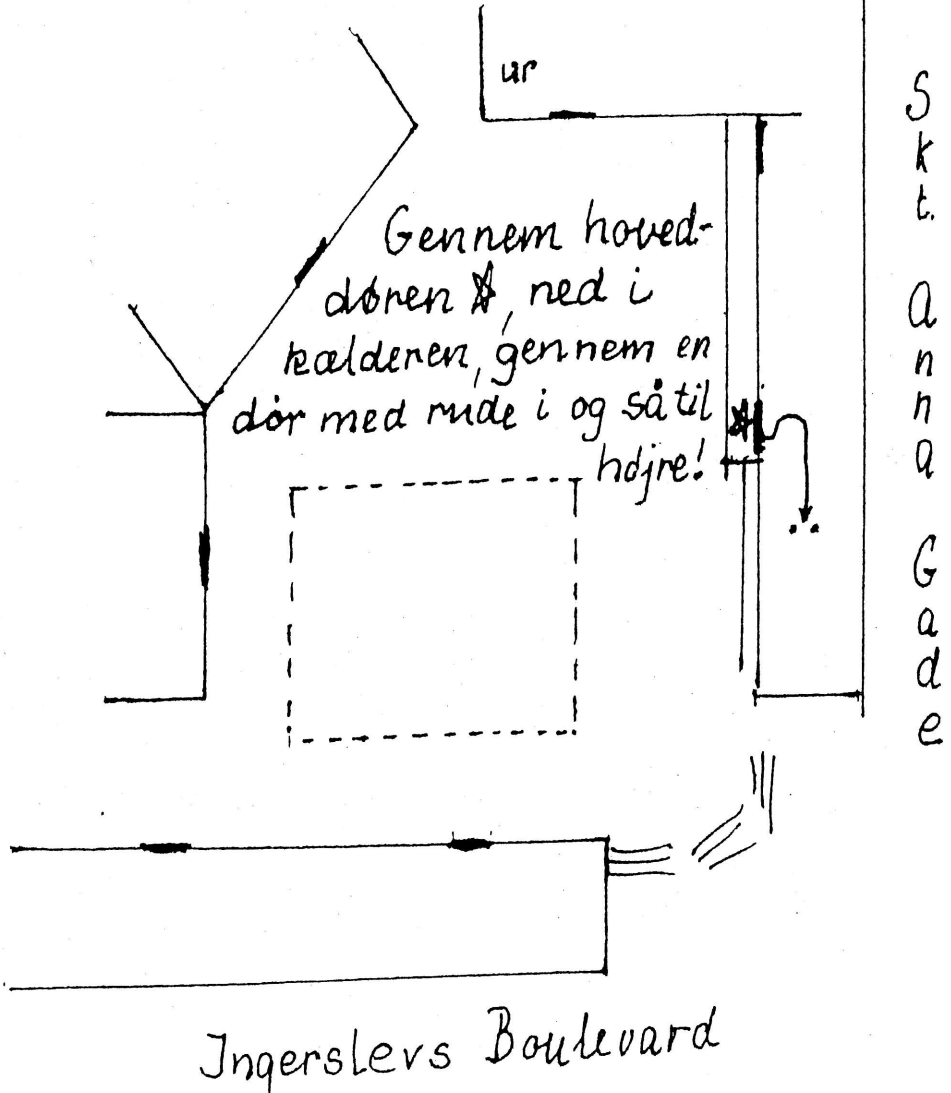 ur
Gennem hoved-
døren ☆, ned i
kælderen, gennem en
dør med rude i og så til
højre!
Skt. Anna Gade
Ingerslevs Boulevard